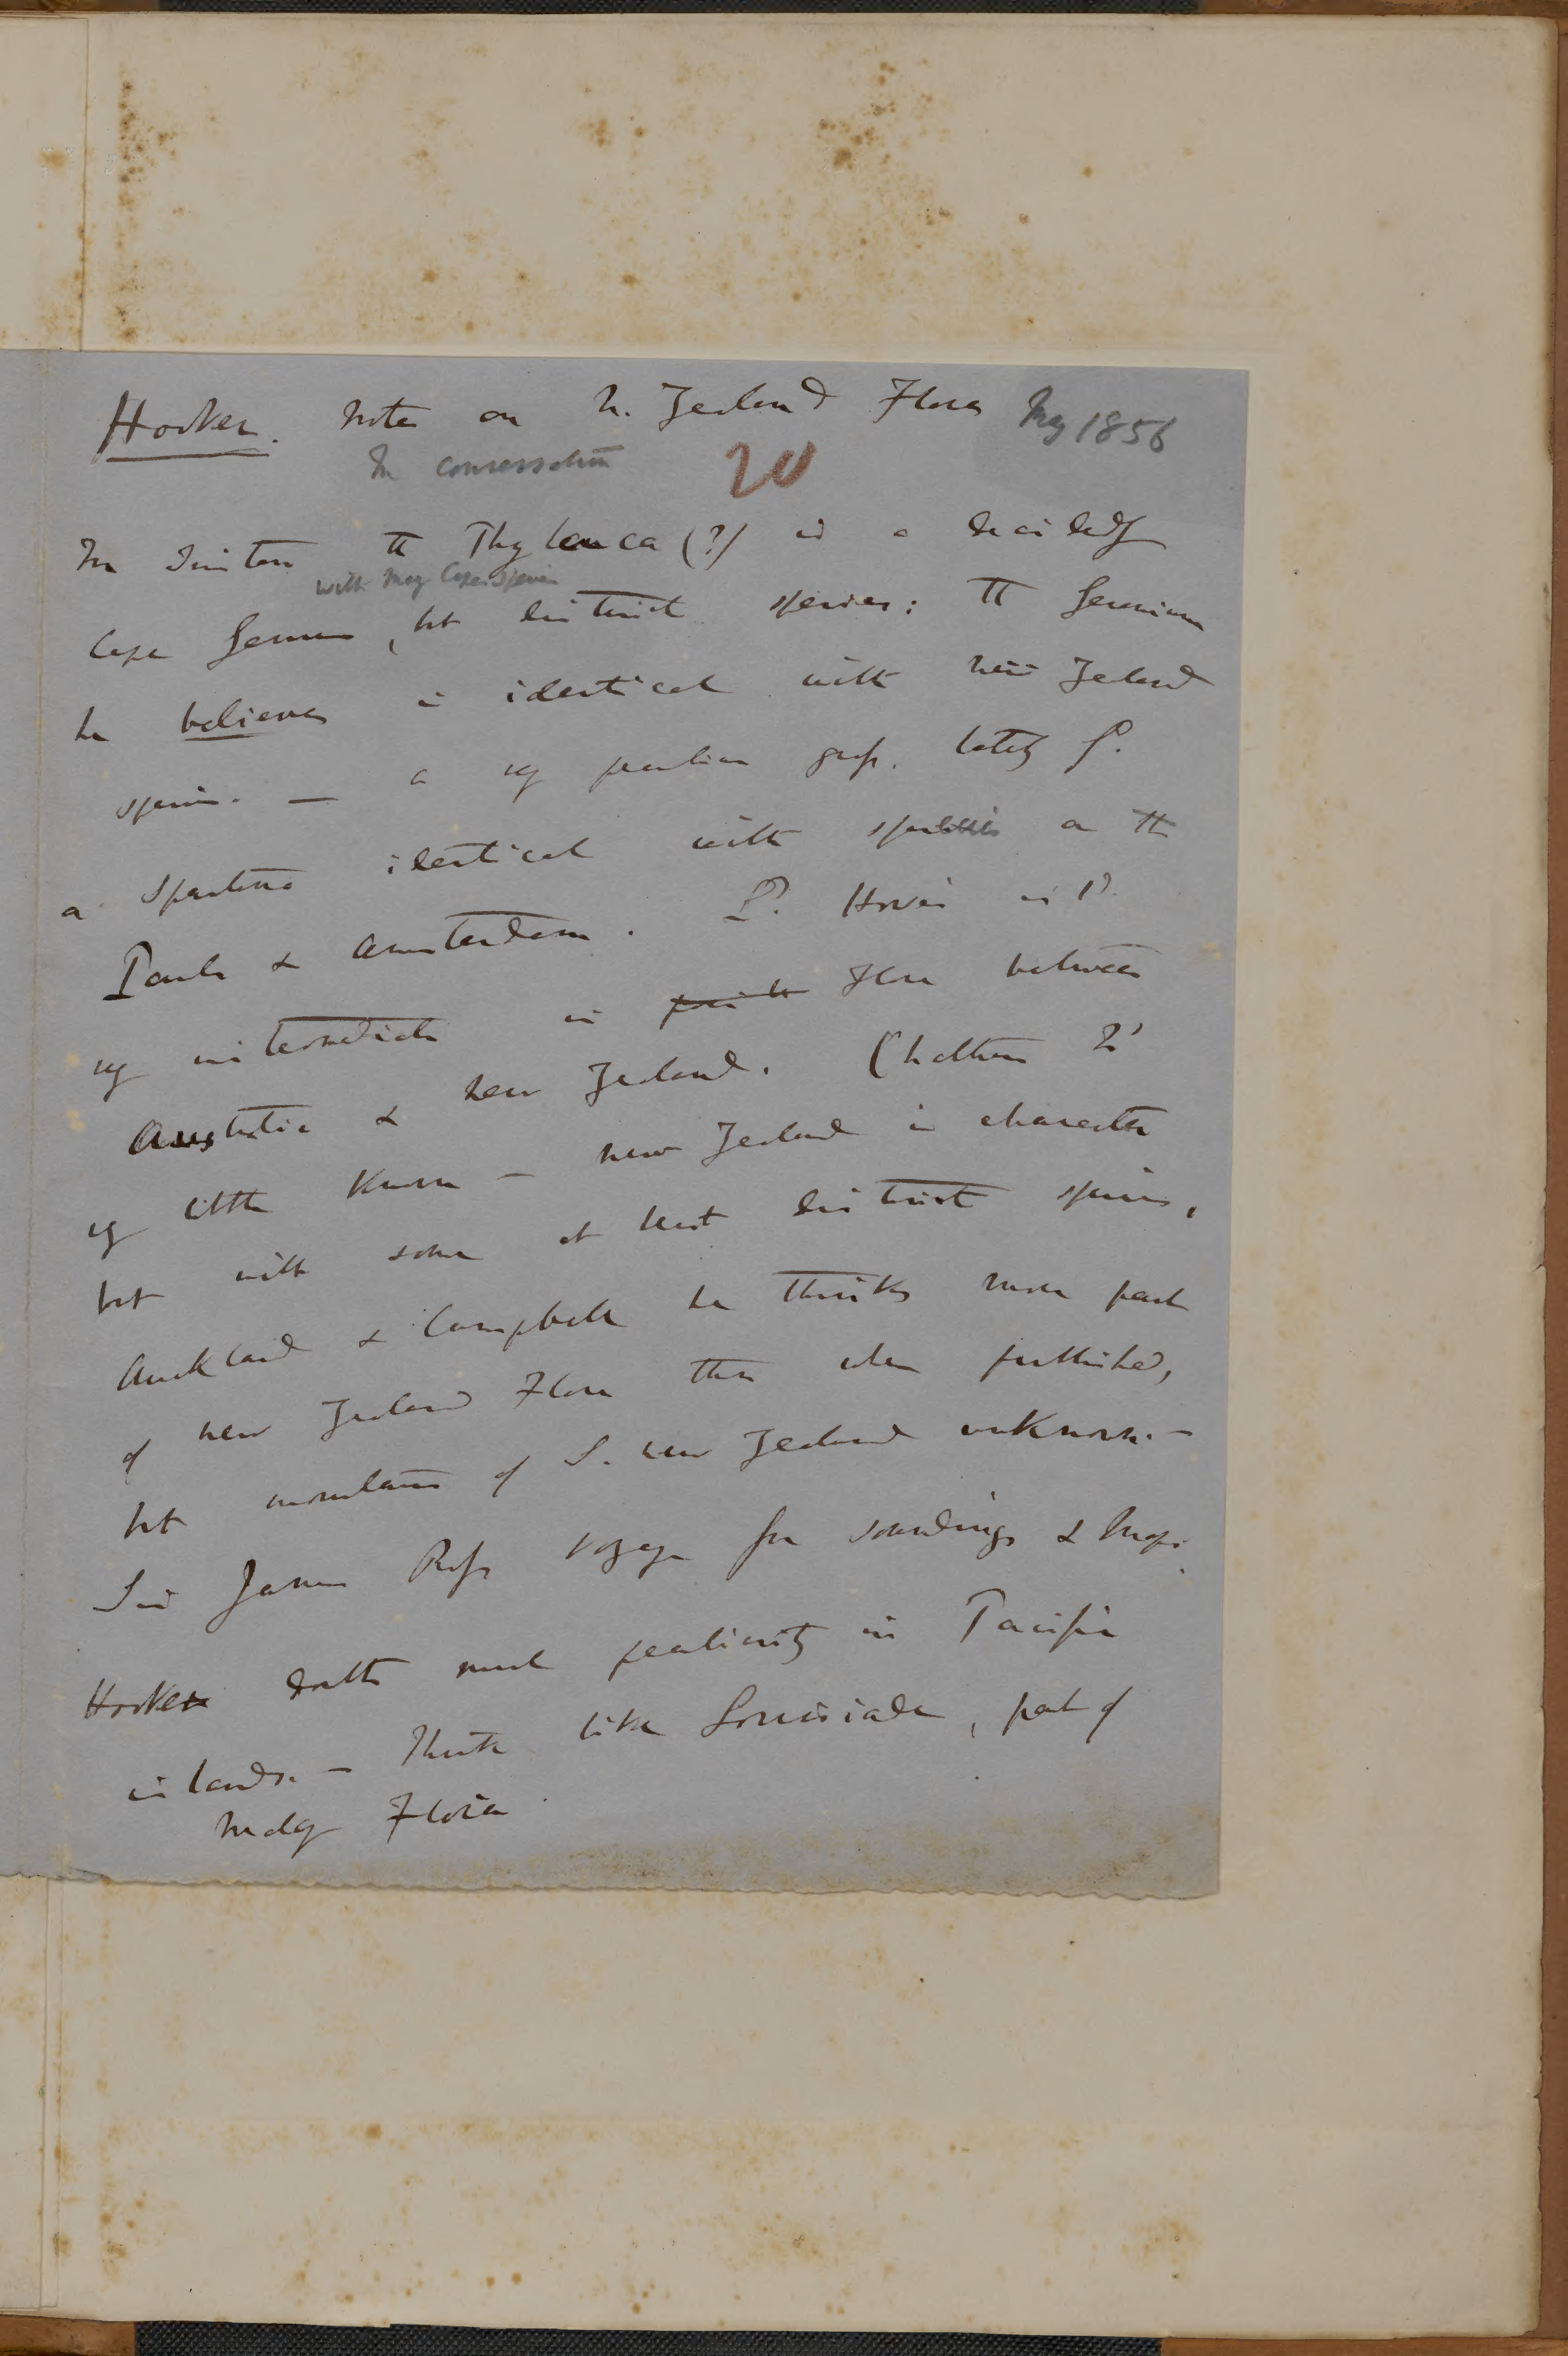 Hooker. Note on N. Zealand Flora May 1856
In conversation 20
the Phylica (?) is a decidedly
with many Cape species
Cape Genus, but distinct species: the Geranium
he believes is identical with New Zealand
species. — a very peculiar group. lately found
a Spartina identical with species on St
Pauls & Amsterdam. Ld. Howe's isld
very intermediate in Flora between
Australia & New Zealand. Chatham Id
very little known — New Zealand in character
but with some at least distinct species,
Auckland & Campbell he thinks more part
of New Zealand Flora than when published,
but mountains of S. New Zealand unknown. —
See James Ross voyage for soundings & Maps.
Hooker doubts much peculiarity in Pacific
islands. — Thinks like Louisiade, part of
Malay Flora